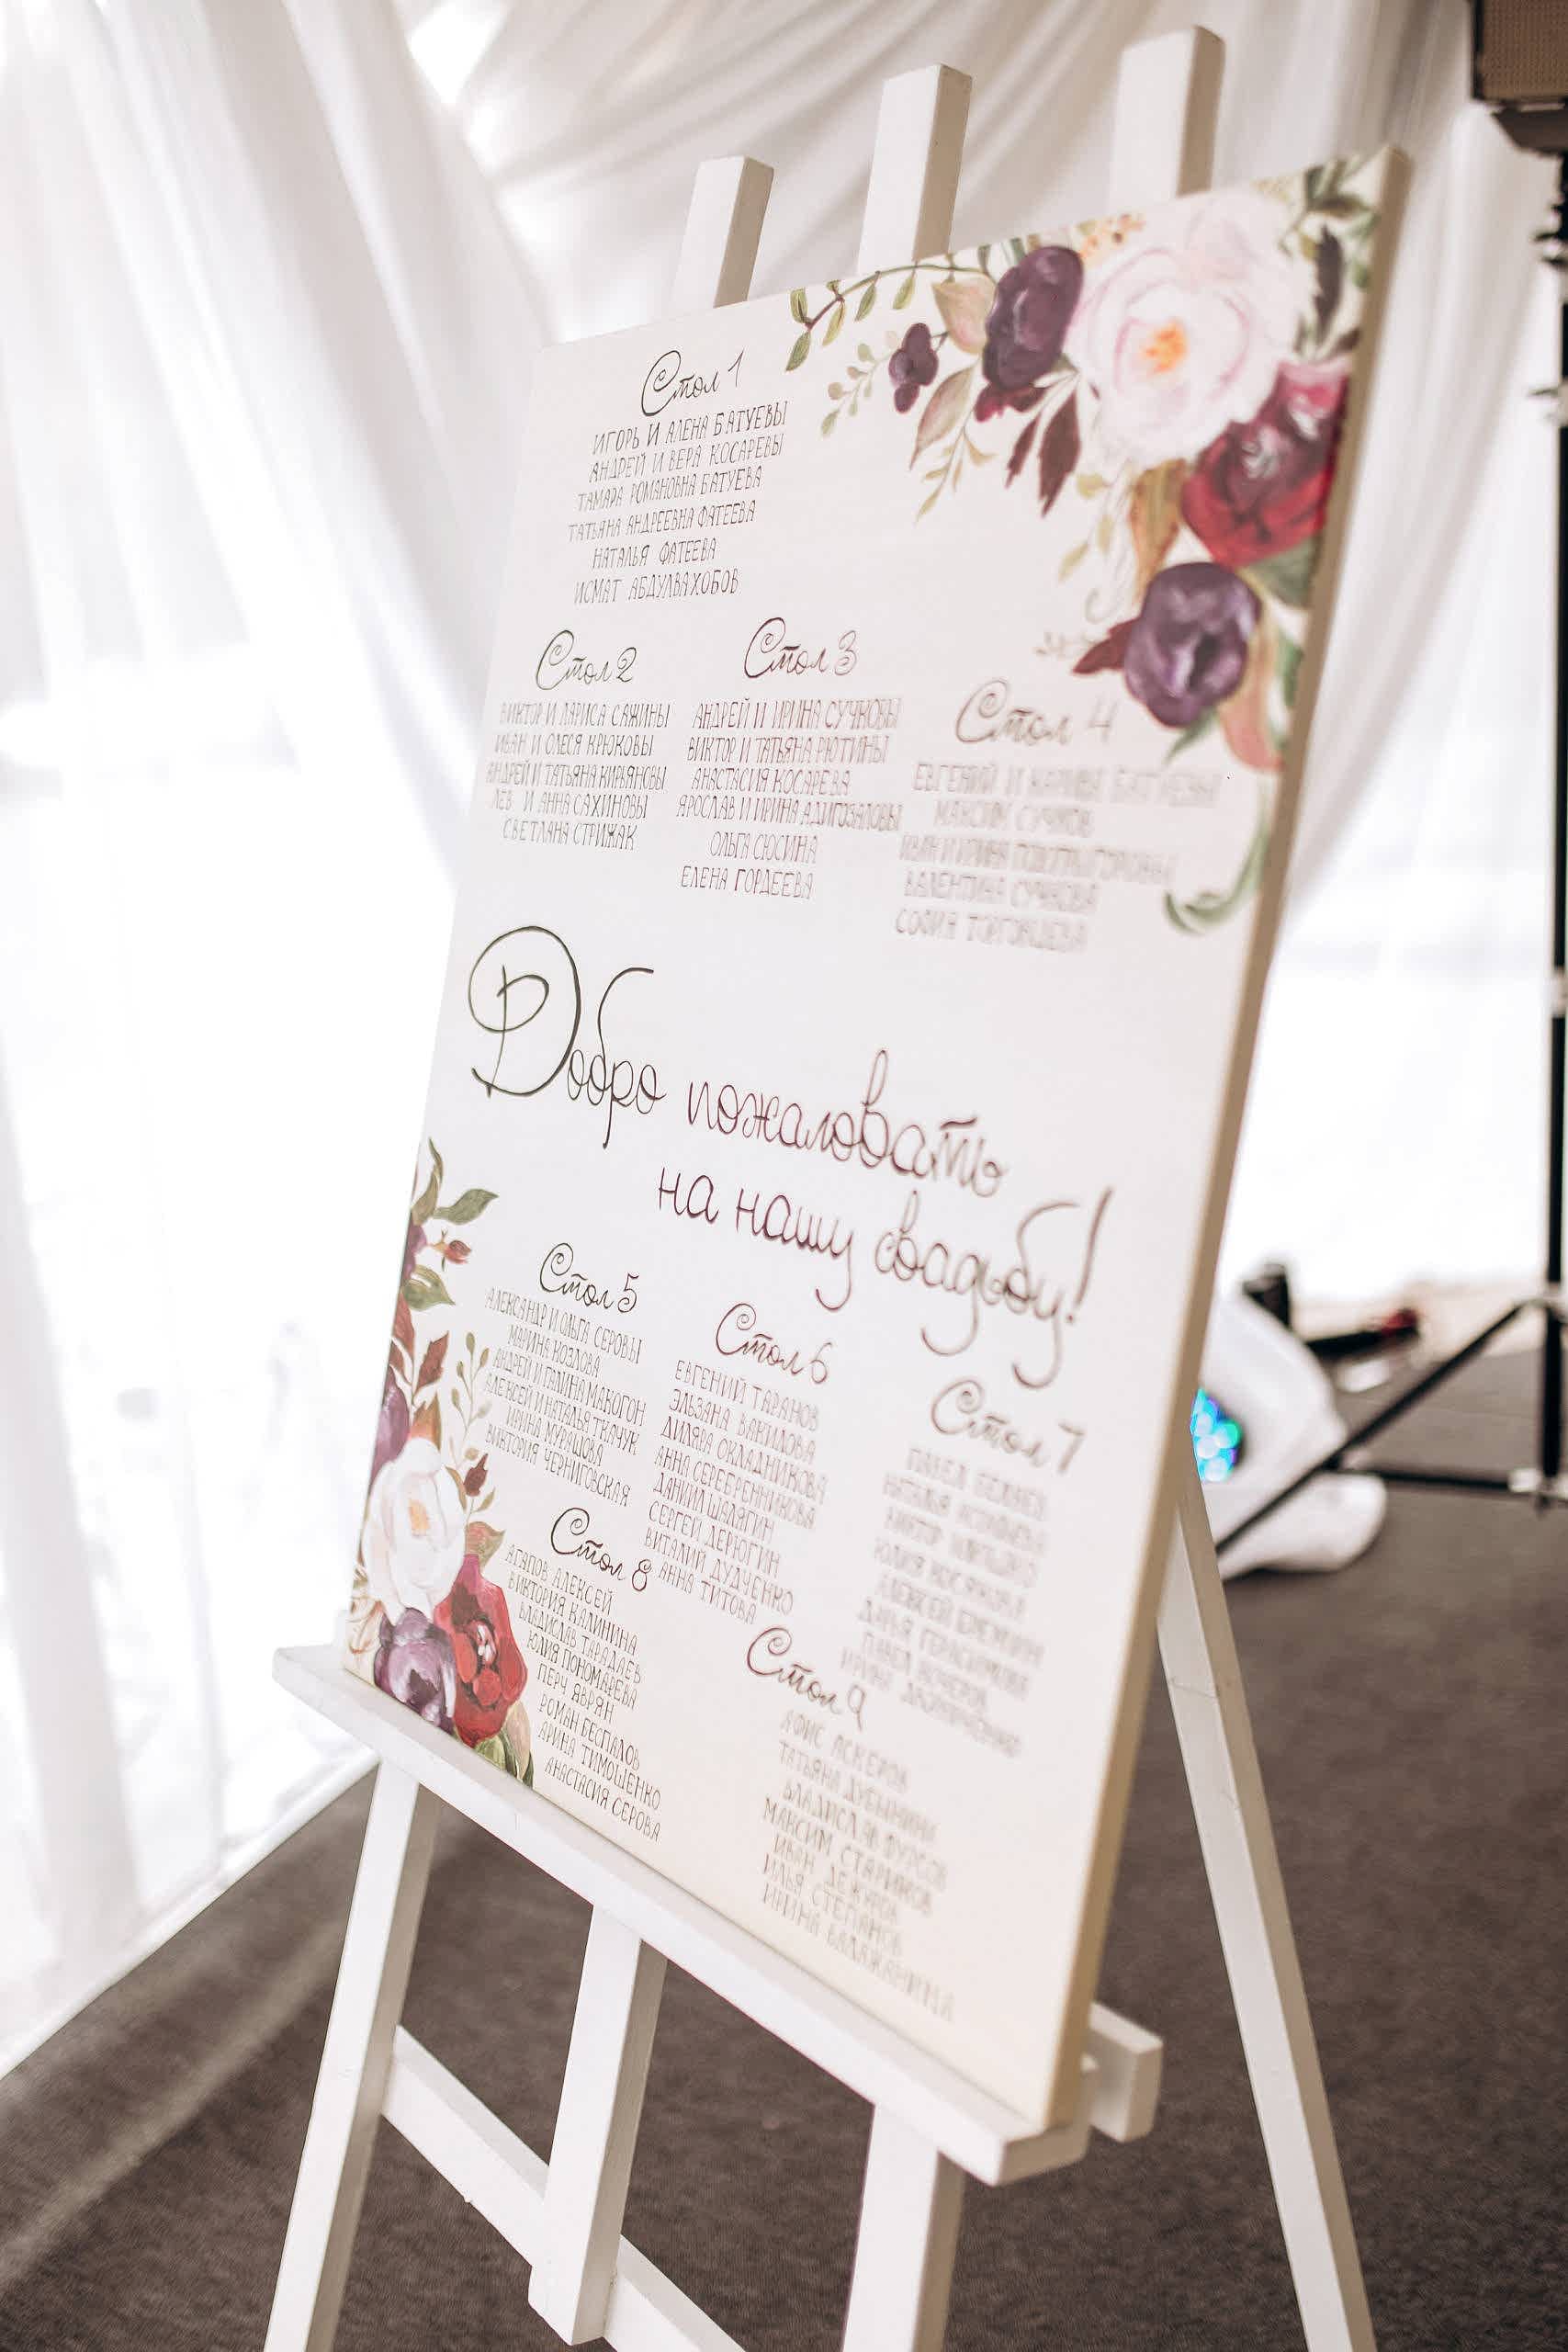 Стол 1
ИГОРЬ И АЛЕНА БАТУЕВЫ
АНДРЕЙ И ВЕРА КОСАРЕВЫ
ТАМАРА РОМАНОВНА БАТУЕВА
ТАТЬЯНА АНДРЕЕВНА ФАТЕЕВА
НАТАЛЬЯ ФАТЕЕВА
ИСМАТ АБДУЛВАХОБОВ
Стол 2
ВИКТОР И ЛАРИСА САЖИНЫ
ИВАН И ОЛЕСЯ КРЮКОВЫ
АНДРЕЙ И ТАТЬЯНА КИРЬЯНОВЫ
ЛЕВ И АННА САХИНОВЫ
СВЕТЛАНА СТРИЖАК
Стол 3
АНДРЕЙ И ИРИНА СУЧКОВЫ
ВИКТОР И ТАТЬЯНА РЮТИНЫ
АНАСТАСИЯ КОСАРЕВА
ЯРОСЛАВ И ИРИНА АДИГОЗАЛОВЫ
ОЛЬГА СЮСИНА
ЕЛЕНА ГОРДЕЕВА
Стол 4
ЕВГЕНИЙ И КАРИНА БАТУЕВЫ
МАКСИМ СУЧКОВ
ИВАН И ИРИНА
ВАЛЕНТИНА СУЧКОВА
СОФИЯ ТОРГОВЦЕВА
Добро пожаловать
на нашу свадьбу!
Стол 5
АЛЕКСАНДР И ОЛЬГА СЕРОВЫ
МАРИНА КОЗЛОВА
АНДРЕЙ И ГАЛИНА МАКОГОН
АЛЕКСЕЙ И НАТАЛЬЯ ТКАЧУК
ИРИНА МУРАШОВА
ВИКТОРИЯ ЧЕРНИГОВСКАЯ
Стол 6
ЕВГЕНИЙ ТАРАНОВ
ЭЛЬЗАНА ВАКИЛОВА
ДИЛЯРА ОКЛАДНИКОВА
АННА СЕРЕБРЕННИКОВА
ДАНИИЛ ШАЛЯГИН
СЕРГЕЙ ДЕРЮГИН
ВИТАЛИЙ ДУДЧЕНКО
АННА ТИТОВА
Стол 7
ПАВЕЛ
НАТАЛЬЯ
ВИКТОР
ЮЛИЯ КОСЯКОВА
АЛЕКСЕЙ ЕРЕМКИН
ДАРЬЯ ГЕРАСИМОВА
ПАВЕЛ
ИРИНА
Стол 8
АГАПОВ АЛЕКСЕЙ
ВИКТОРИЯ КАЛИНИНА
ВЛАДИСЛАВ ТАРАДАЕВ
ЮЛИЯ ПОНОМАРЕВА
ПЕРЧ ЯВРЯН
РОМАН БЕСПАЛОВ
АРИНА ТИМОШЕНКО
АНАСТАСИЯ СЕРОВА
Стол 9
АСКЕРОВ
ТАТЬЯНА ДУБЫНИНА
ВЛАДИСЛАВ ФУРСОВ
МАКСИМ СТАРИКОВ
ИВАН
ИЛЬЯ СТЕПАНОВ
ИРИНА БАЛАЖАНИНА